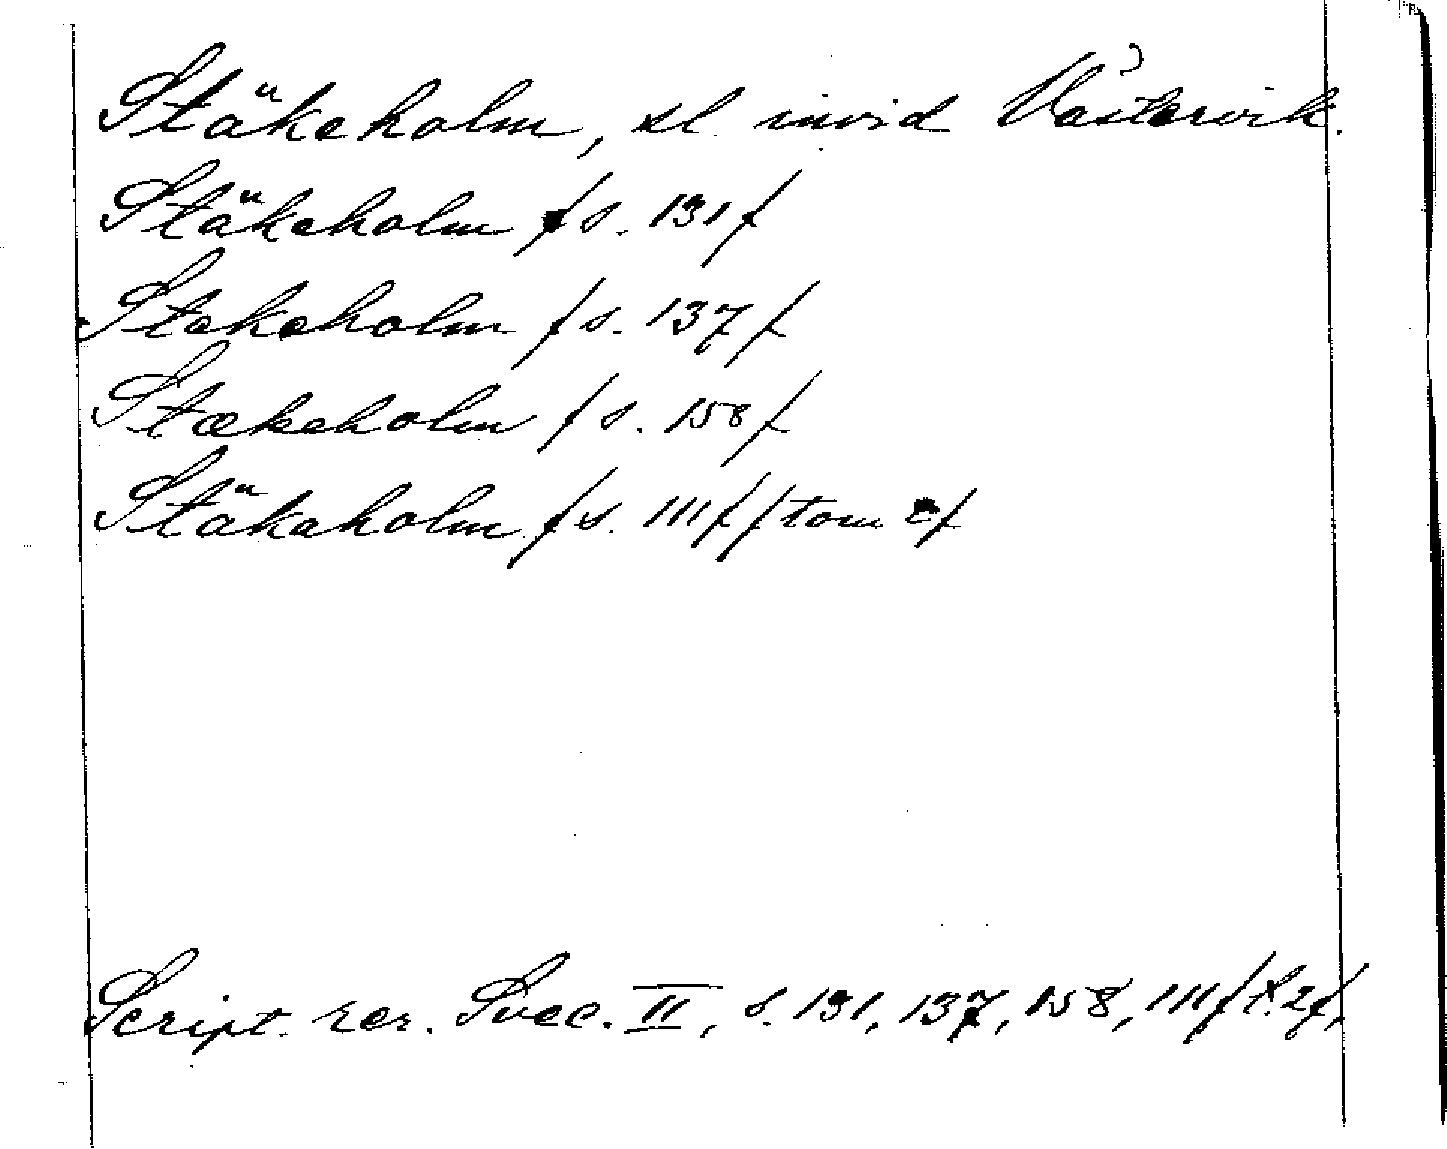 Stäkeholm, sl. invid Västervik.
Stäkeholm /s. 131/
Stekeholm /s. 137/
Stækeholm /s. 158/
Stäkaholm /s. 111/ /tom 2/
Script. rer. Svec. II, s. 131, 137, 158, 111 /t. 2/,